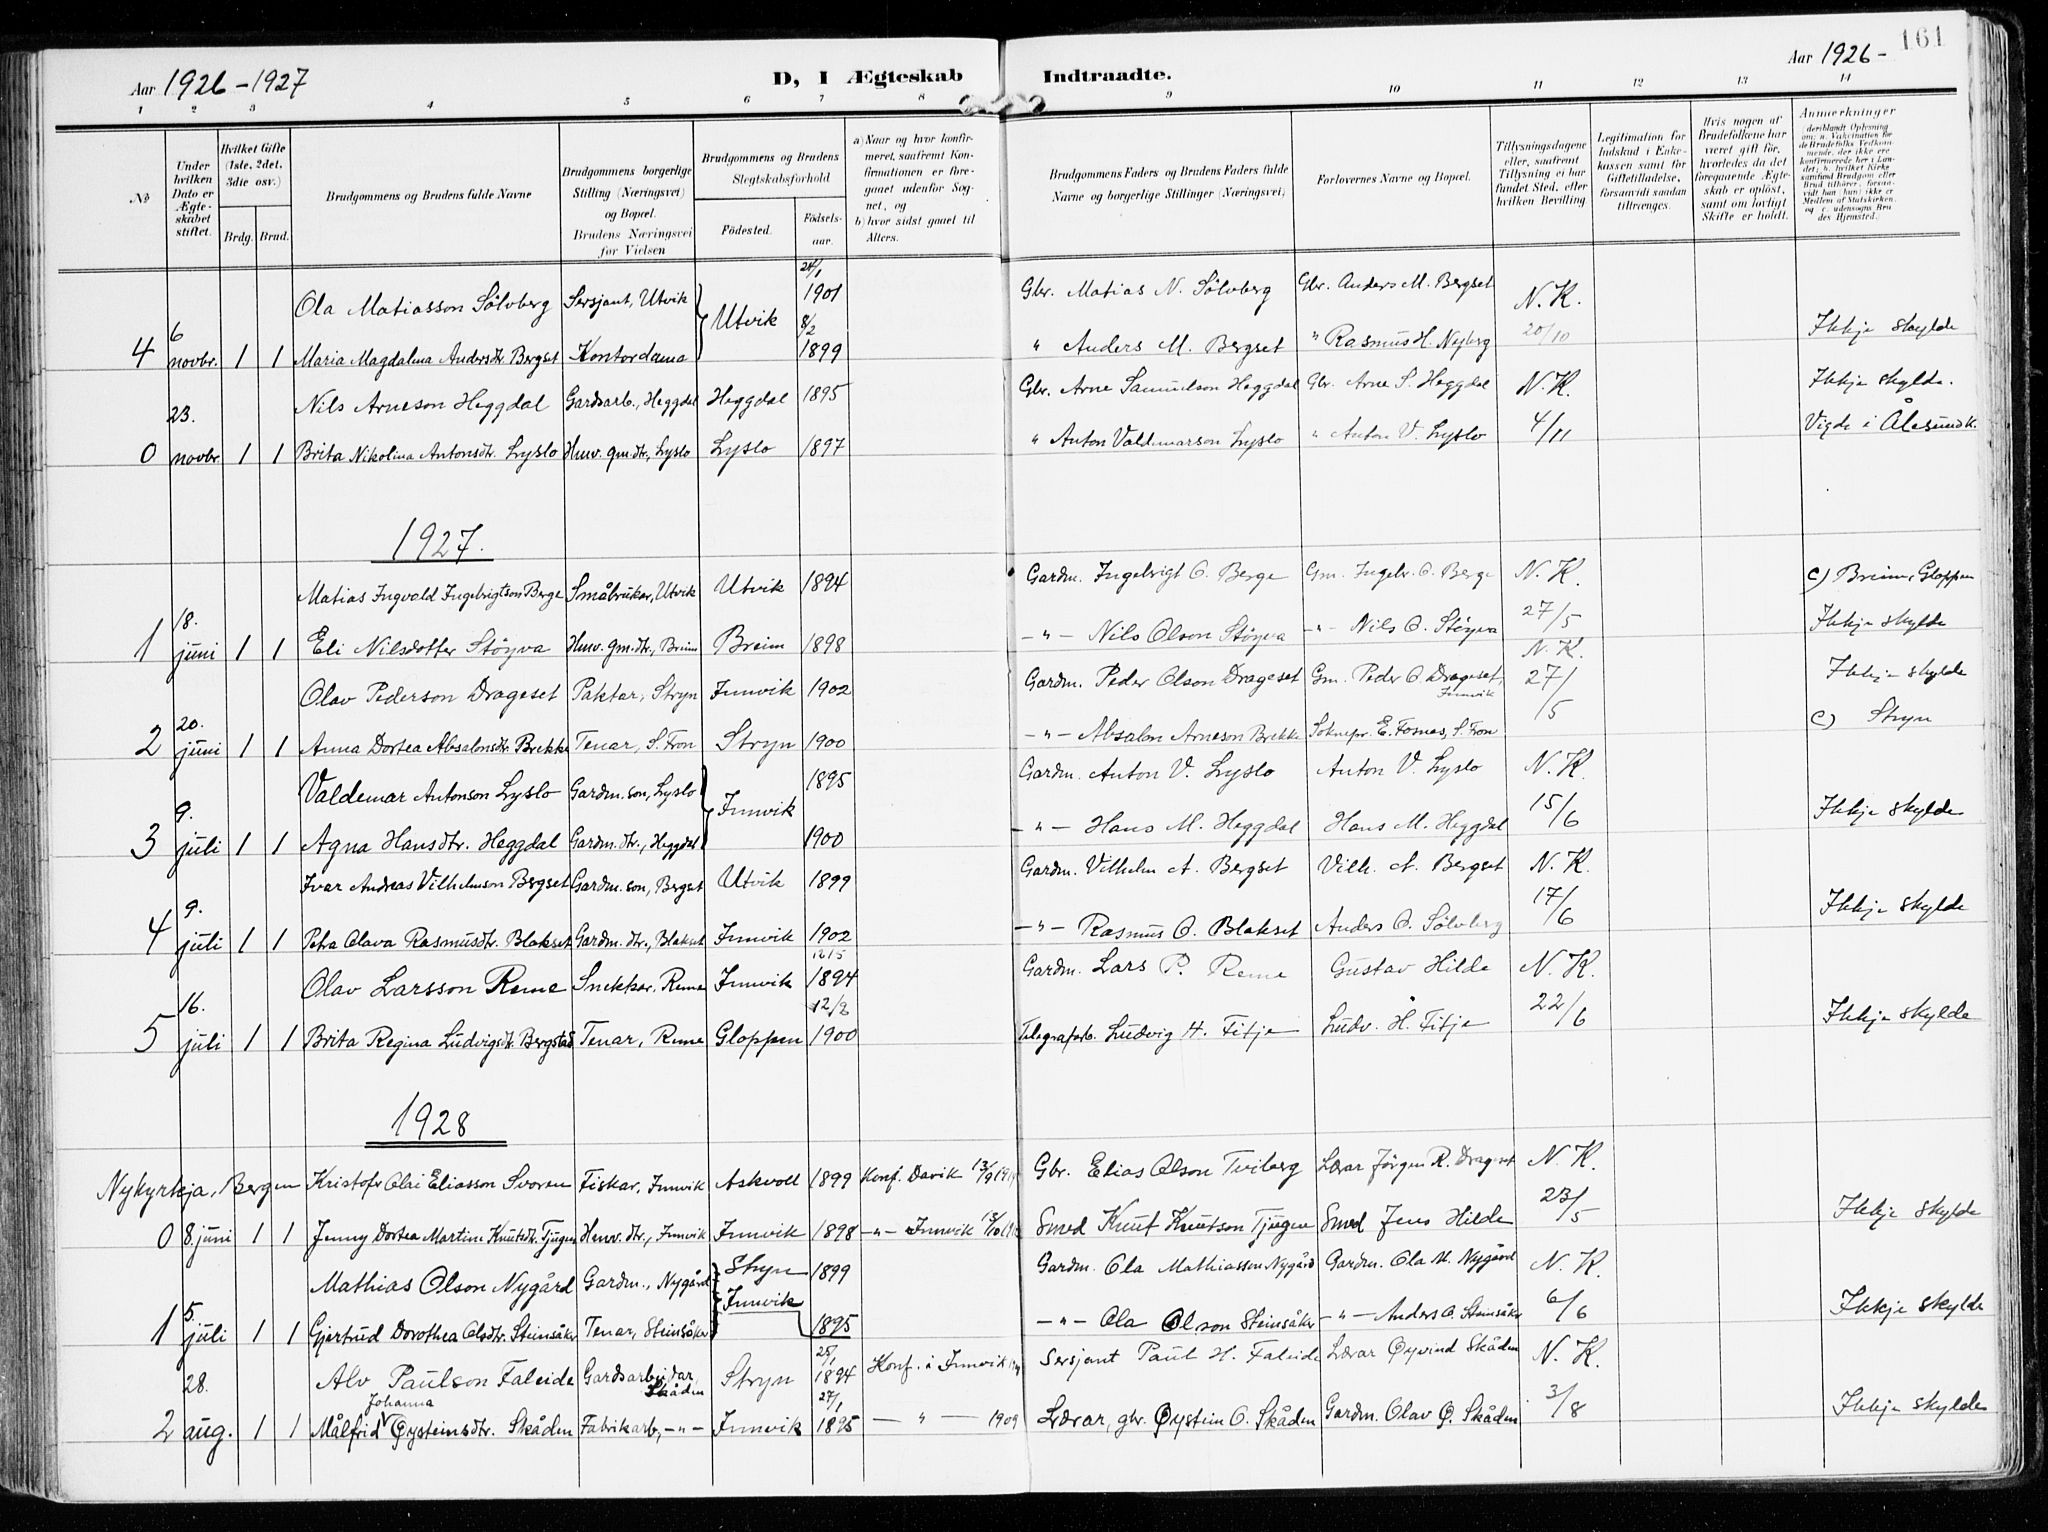 Aar 1926-1927
D, I Ægteskab Indtraadte.
Aar 1926-
161
1 2 3 4 5 6 7 8 9 10 11 12 13 14
No
Under hvilken Dato er Ægteskabet stiftet.
Hvilket Gifte (1ste, 2det, 3die osv.)
Brdg. Brud.
Brudgommens og Brudens fulde Navne
Brudgommens borgerlige Stilling (Næringsvei) og Bopæl. Brudens Næringsvei før Vielsen
Brudgommens og Brudens Slegtskabsforhold
Födested. Födselsaar.
a) Naar og hvor konfirmeret, saafremt Konfirmationen er foregaaet udenfor Sognet, og b) hvor sidst gaaet til Alters.
Brudgommens Faders og Brudens Faders fulde Navne og borgerlige Stillinger (Næringsvei)
Forlovernes Navne og Bopæl.
Tillysningsdagene eller, saafremt Tillysning ei har fundet Sted, efter hvilken Bevilling
Legitimation for Indskud i Enkekassen samt for Giftetilladelse, forsaavidt saadan tiltrænges.
Hvis nogen af Brudefolkene har været gift før, hvorledes da det foregaaende Ægteskab er opløst, samt om lovligt Skifte er holdt.
Anmærkninger
Ola Matiasson Sölvberg Sersjant, Utvik Utvik 24/1 1901 Gbr. Matias N. Sölvberg Gbr. Anders M. Bergset N. K.
4 6 novbr. 1 1 Maria Magdalena Andersdtr. Bergset Kontordama 8/2 1899 " Anders M. Bergset " Rasmus H. Nyberg 20/10 Ikkje skylde
Nils Arneson Heggdal Gardsarb., Heggdal Heggdal 1895 Gbr. Arne Samuelson Heggdal Gbr. Arne S. Heggdal N. K. Ikkje skylde.
0 23. novbr 1 1 Brita Nikolina Antonsdtr. Lyslo Heimv. gm.dtr., Lyslo Lyslo 1897 " Anton Valdemarson Lyslo " Anton V. Lyslo 4/11 Vigde i Ålesund k.
1927.
Matias Ingvald Ingebrigtson Berge Småbrukar, Utvik Utvik 1894 Gardm. Ingebrigt O. Berge Gm. Ingebr. O. Berge N. K. c) Breim, Gloppen
1 18. juni 1 1 Eli Nilsdotter Støyva Heimv. gm.dtr., Breim Breim 1898 -"- Nils Olson Støyva -"- Nils O. Støyva 27/5 Ikkje skylde
Olav Pederson Drageset Paktar, Stryn Innvik 1902 Gardm. Peder Olson Drageset Gm. Peder O. Drageset, Innvik N. K. 27/5 Ikkje skylde
2 20. juni 1 1 Anna Dortea Absalonsdtr. Brekke Tenar, S. Fron Stryn 1900 -"- Absalon Arneson Brekke Soknepr. E. Fosnes, S. Fron c) Stryn
Valdemar Antonson Lyslo Gardm. son, Lyslo Innvik 1895 Gardm. Anton V. Lyslo Anton V. Lyslo N. K.
3 9. juli 1 1 Agna Hansdtr. Heggdal Gardm. dtr., Heggdal 1900 -"- Hans M. Heggdal Hans M. Heggdal 15/6 Ikkje skylde
Ivar Andreas Vilhelmson Bergset Gardm. son, Bergset Utvik 1899 Gardm. Vilhelm A. Bergset Vilh. A. Bergset N. K.
4 9. juli 1 1 Petra Olava Rasmusdtr. Blakset Gardm. dtr., Blakset Innvik 1902 -"- Rasmus O. Blakset Anders O. Sölvberg 17/6 Ikkje skylde
Olav Larsson Reme Snekkar, Reme Innvik 12/5 1894 Gardm. Lars P. Reme Gustav Hilde N. K.
5 16. juli 1 1 Brita Regina Ludvigsdtr. Bergstad Tenar, Reme Gloppen 12/2 1900 Telegrafarb. Ludvig H. Fitje Ludv. H. Fitje 22/6 Ikkje skylde
1928
Nykyrkja, Bergen Kristofer Olai Eliasson Svoren Fiskar, Innvik Askvoll 1899 Konf. Davik 13/9 Gbr. Elias Olson Tviberg Lærar Jørgen R. Drageset N. K.
0 8. juni 1 1 Jenny Dortea Martine Knutsdtr. Tjugen Heimv. dtr., Innvik Innvik 1898 -"- Innvik Smed Knut Knutson Tjugen Smed Jens Hilde 23/5 Ikkje skylde
Mathias Olson Nygård Gardm., Nygård Stryn 1899 Gardm. Ola Mathiasson Nygård Gardm. Ola M. Nygård N. K.
1 5. juli 1 1 Gjertrud Dorothea Olsdtr. Steinsåker Tenar, Steinsåker Innvik 1895 -"- Ola Olson Steinsåker -"- Anders O. Steinsåker 6/6 Ikkje skylde
Alv Paulson Faleide Gardsarbeidar, Skåden Stryn 25/1 1894 Konf. i Innvik Sersjant Paul H. Faleide Lærar Øyvind Skåden N. K.
2 28. aug. 1 1 Målfrid Johanna Øysteinsdtr. Skåden Fabrikarb., -"- Innvik 27/1 1895 -"- 1909 Lærar, gbr. Øystein O. Skåden Gardm. Olav Ø. Skåden 3/8 Ikkje skylde